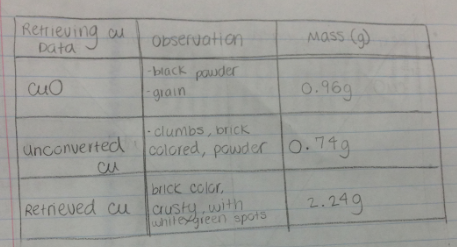 Retrieving cu Data
Observation
Mass (g)
CuO
-black powder
-grain
0.96g
unconverted cu
-clumbs, brick
colored, powder
0.74g
Retrieved cu
brick color,
crusty, with
white+green spots
2.24g